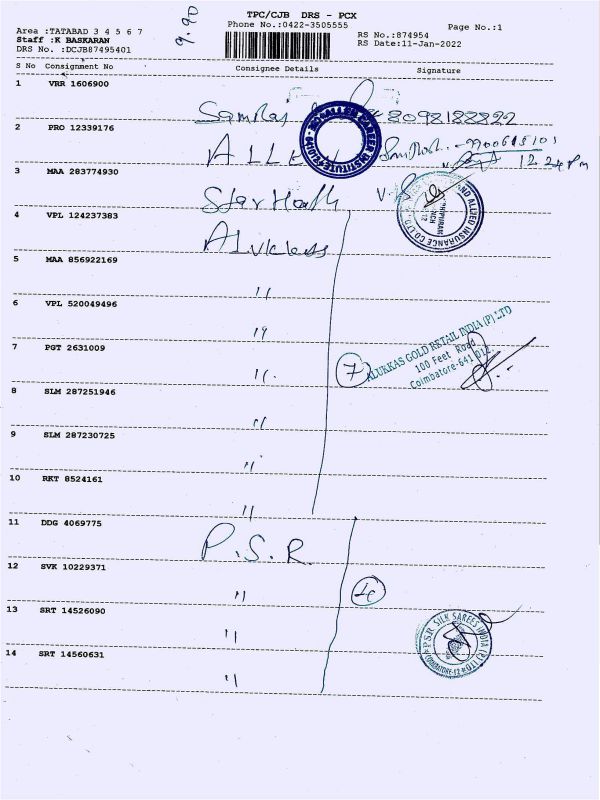 TPC/CJB DRS - PCX
Area :TATABAD 3 4 5 6 7
Phone No.:0422-3505555
Page No.:1
Staff :K BASKARAN
RS No.:874954
DRS No. :DCJB87495401
RS Date:11-Jan-2022
9.90
S No Consignment No Consignee Details Signature
1 VRR 1606900
8098188822
2 PRO 12339176
ALLEN
12 24 pm
3 MAA 283774930
Star Health
4 VPL 124237383
Alukkas
5 MAA 856922169
"
6 VPL 520049496
"
7 PGT 2631009
"
7
ALUKKAS GOLD RETAIL INDIA (P) LTD
100 Feet Road
Coimbatore-641 012.
8 SLM 287251946
"
9 SLM 287230725
"
10 RKT 8524161
"
11 DDG 4069775
P.S.R.
12 SVK 10229371
"
13 SRT 14526090
"
PSR SILK SAREES INDIA (P) LTD
COIMBATORE-12
14 SRT 14560631
"